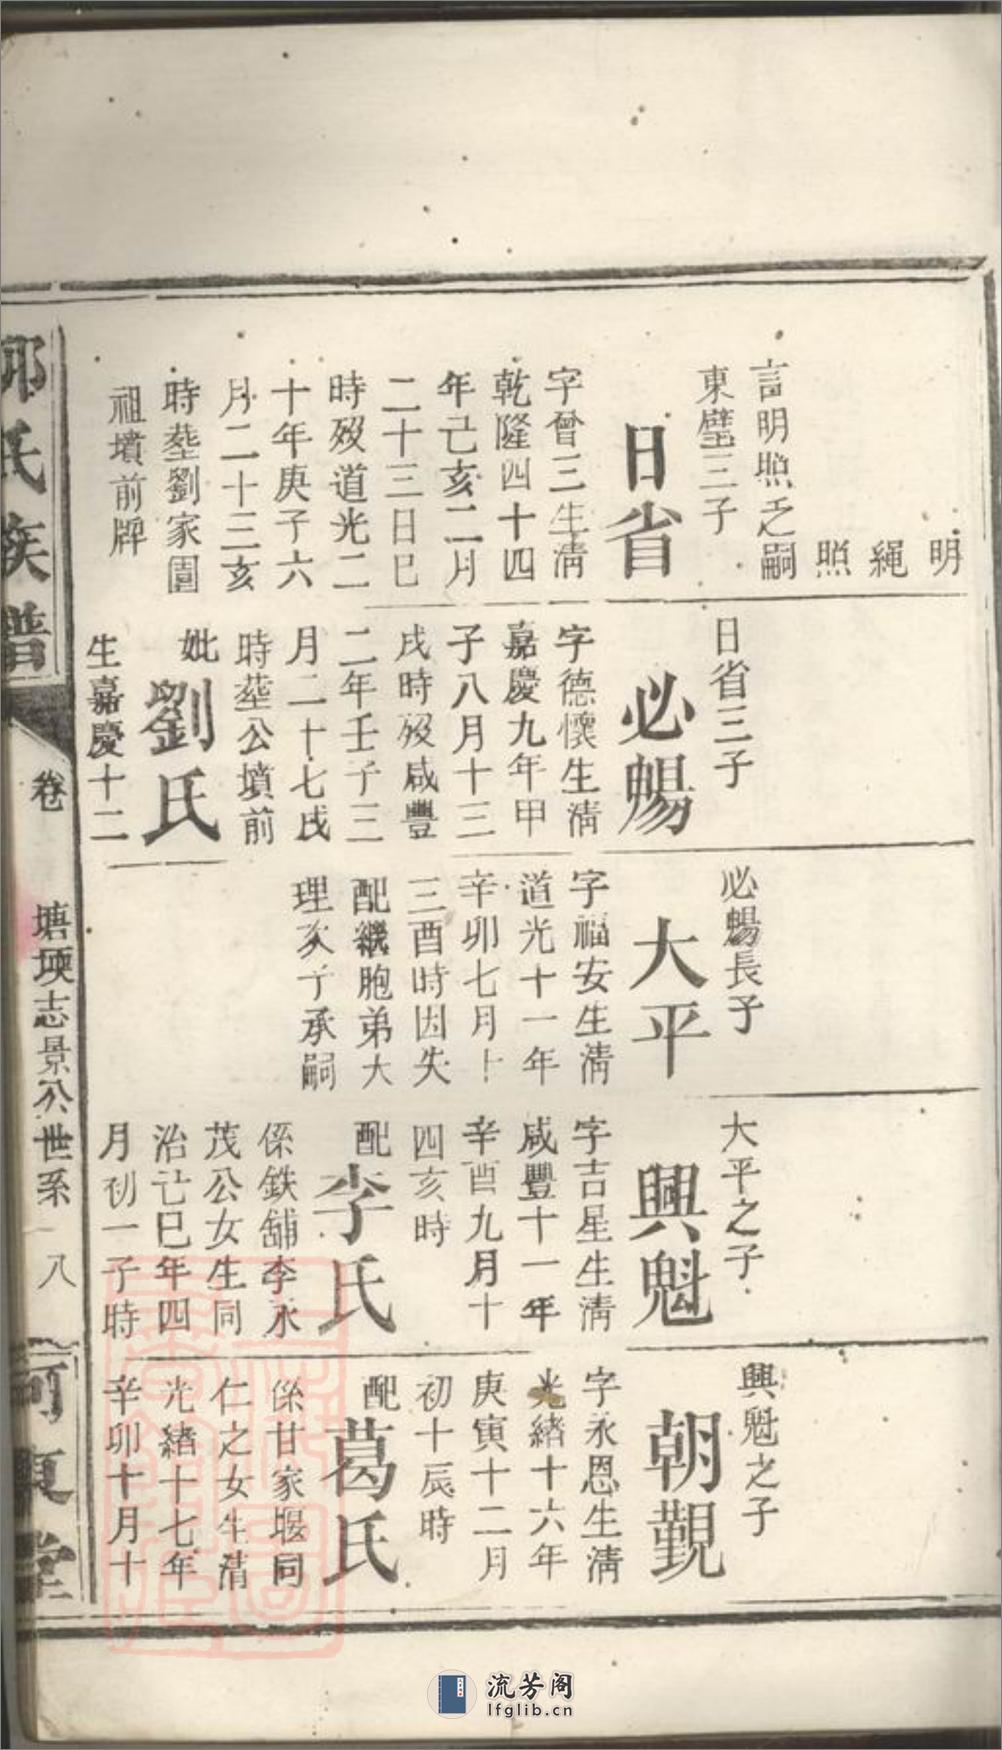 明
繩
照
言明照之嗣
東璧三子
日省
字曾三生淸
乾隆四十四
年己亥二月
二十三日巳
時歿道光二
十年庚子六
月二十三亥
時塟劉家園
祖墳前牌
日省三子
必暢
字德懷生淸
嘉慶九年甲
子八月十三
戌時歿咸豐
二年壬子三
月二十七戌
時塟公墳前
妣劉氏
生嘉慶十二
必暢長子
大平
字福安生淸
道光十一年
辛卯七月十
三酉時因失
配繼胞弟大
理次子承嗣
大平之子
興魁
字吉星生淸
咸豐十一年
辛酉九月十
四亥時
配李氏
係鉄舖李永
茂公女生同
治己巳年四
月初一子時
興魁之子
朝觐
字永恩生淸
光緒十六年
庚寅十二月
初十辰時
配葛氏
係甘家堰同
仁之女生清
光緒十七年
辛卯十月十
氏族譜
卷
塘堧志景公世系
八
河東堂
流芳阁
lfglib.cn